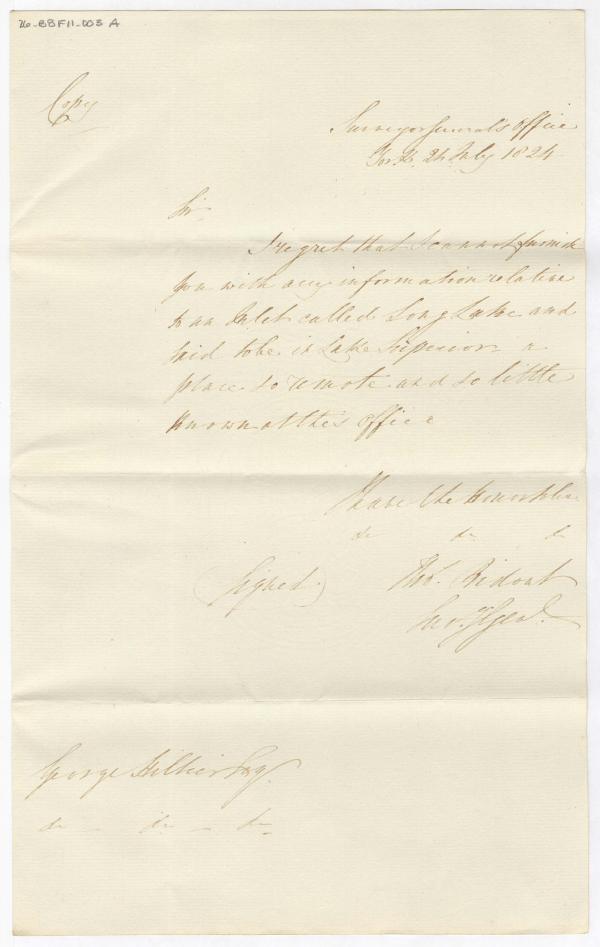 26-BBF11-003 A
Copy
Surveyor General's Office
York 24 July 1824
Sir
I regret that I cannot furnish
you with any information relative
to an Inlet called Long Lake and
said to be in Lake Superior a
place so remote and so little
known at this office
I have the Honor to be
&c &c &c
(Signed) Thos. Ridout
Survr. Genl.
George Hillier Esqr.
&c - &c - &c